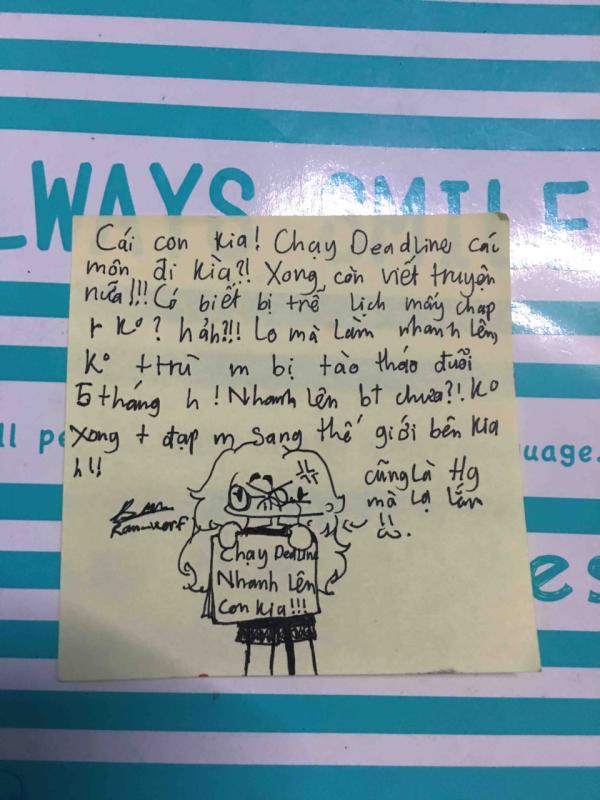 WAYS SMILE
Cái con kia! Chạy Deadline các
môn đi kìa?! Xong còn viết truyện
nữa!!! Có biết bị trễ lịch mấy chap
r ko? hảh?!! Lo mà làm nhanh lên,
ko t trù m bị tào tháo đuổi
5 tháng h! Nhanh lên bt chưa?! Ko
xong t đạp m sang thế giới bên kia
h!!
ll pe
uage.
cũng là Hg
mà lạ lắm
!!
es
Chạy Deadline
Nhanh Lên
Con kia!!!